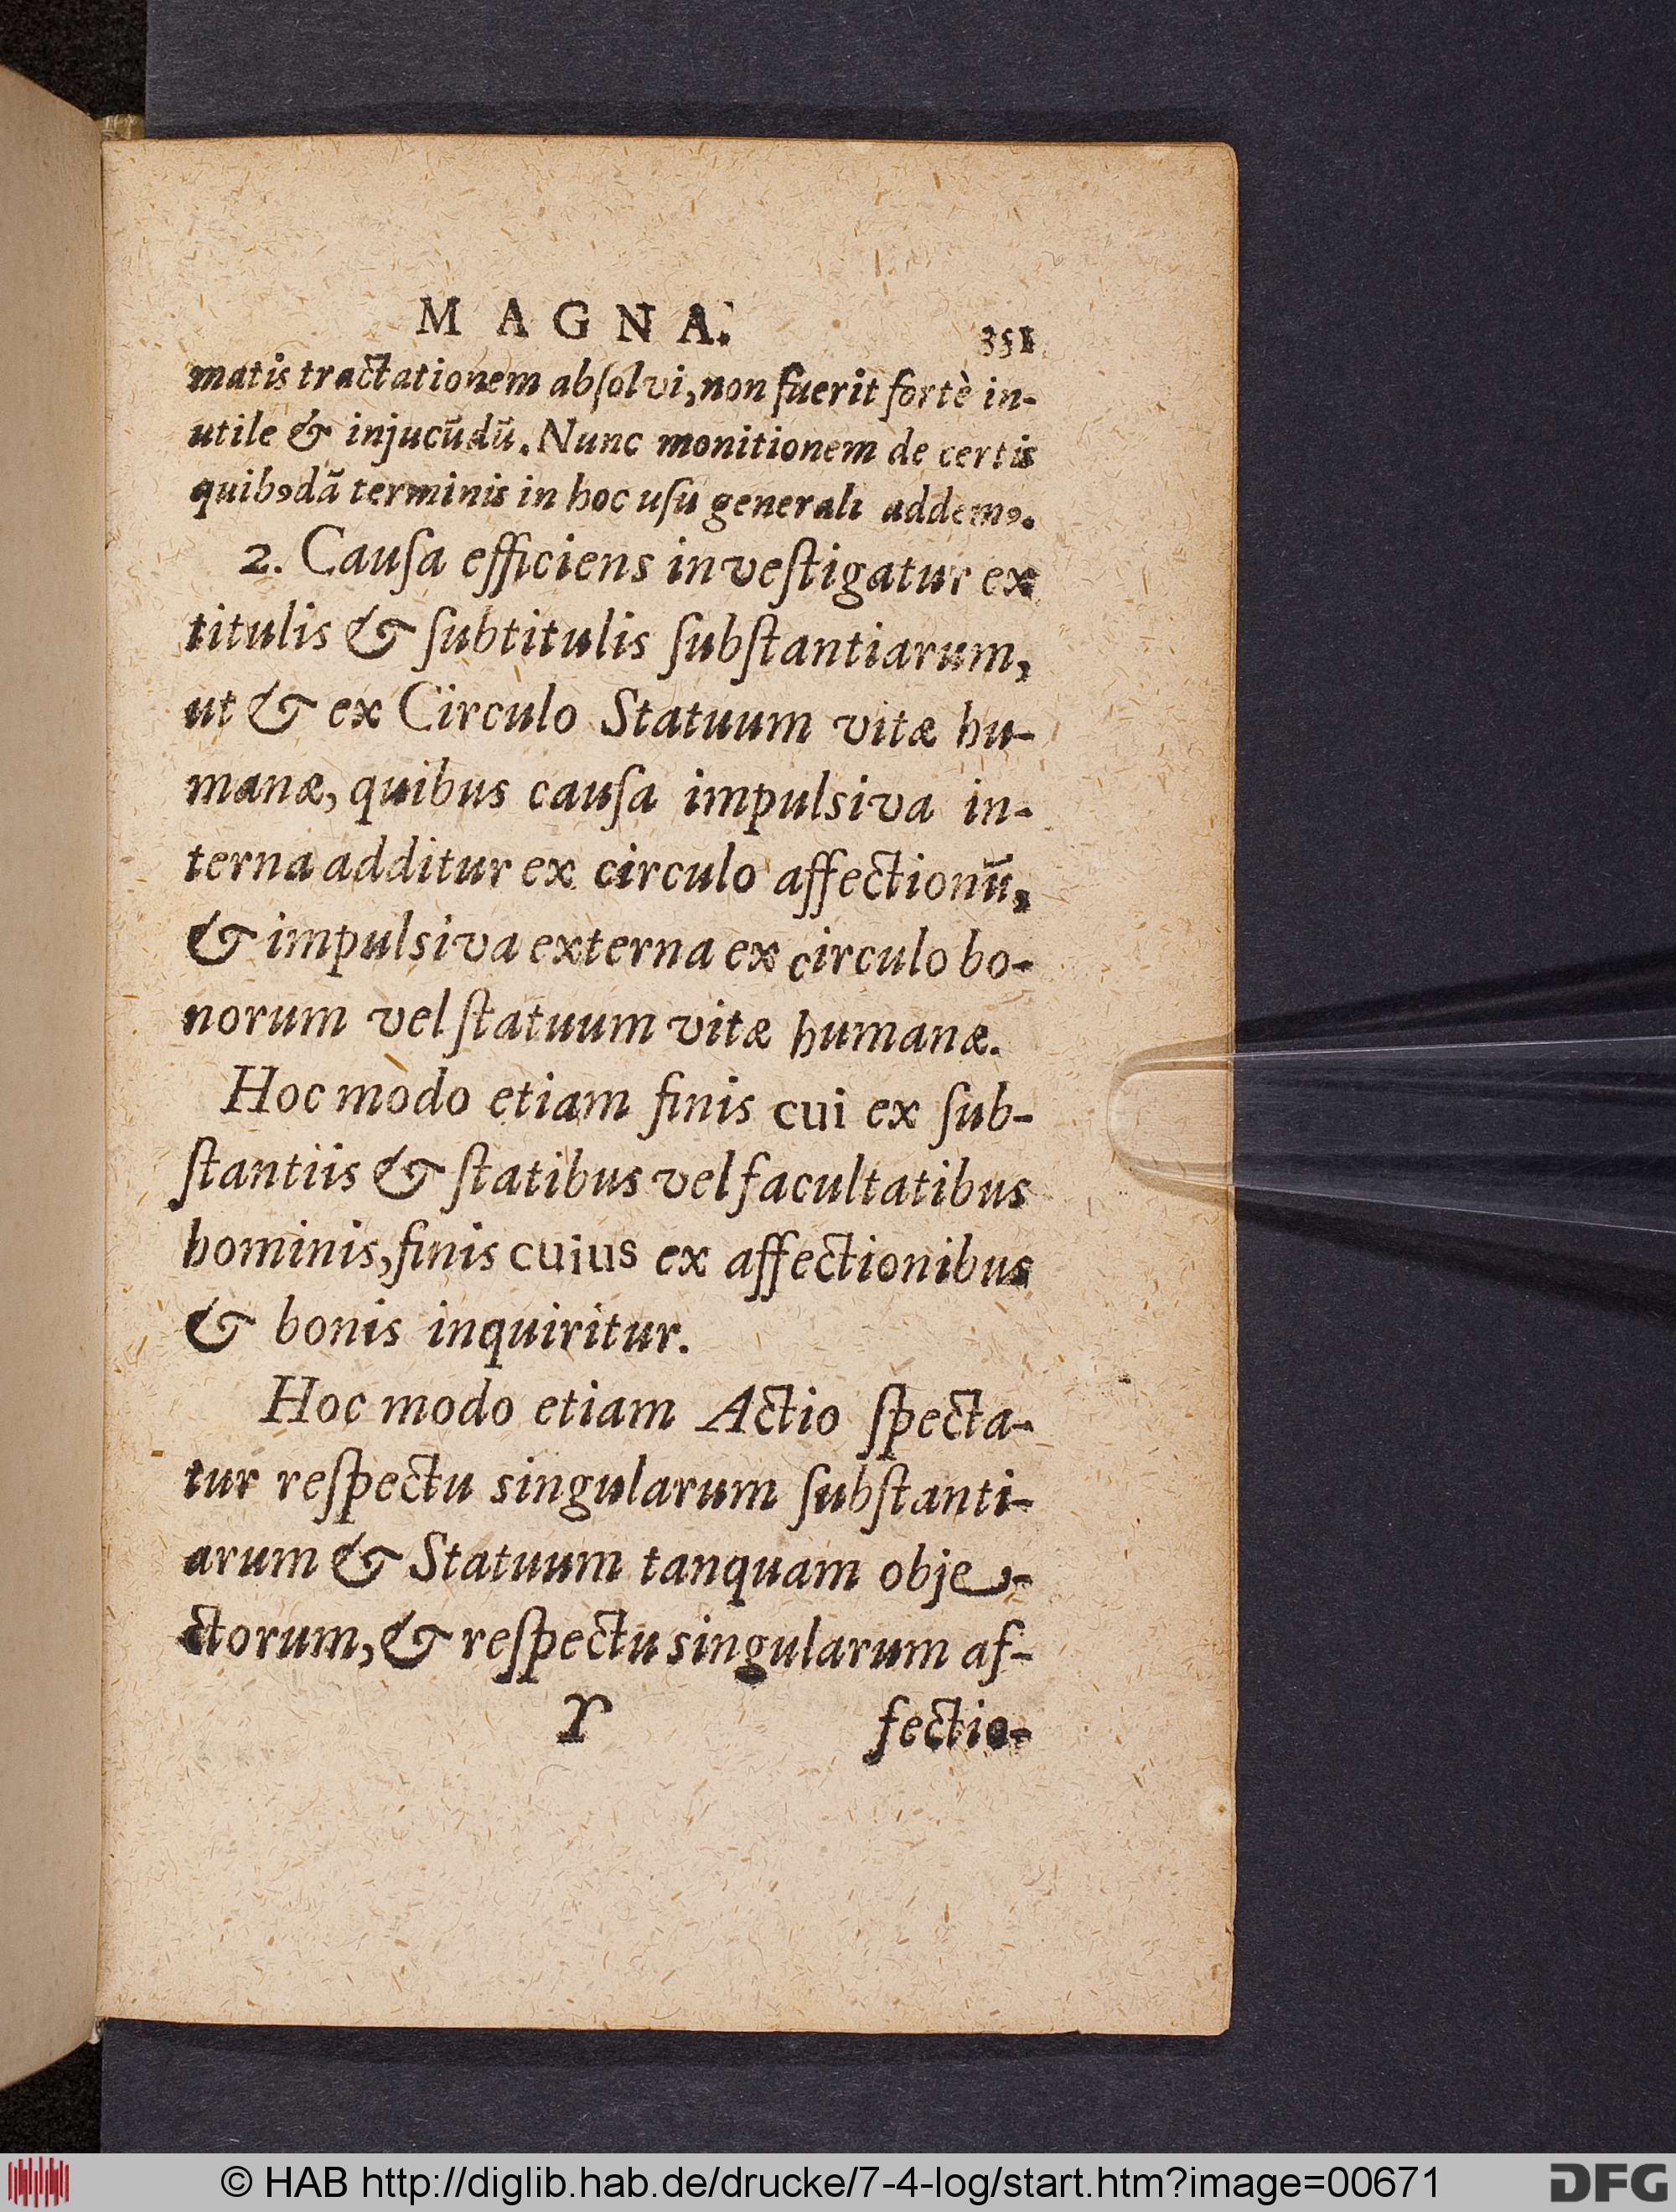 MAGNA. 351
matis tractationem abſolvi, non fuerit fortè in-
utile & injucūdū. Nunc monitionem de certis
quibꝰdā terminis in hoc uſu generali addemꝰ.
2. Cauſa efficiens inveſtigatur ex
titulis & ſubtitulis ſubſtantiarum,
ut & ex Circulo Statuum vitæ hu-
manæ, quibus cauſa impulsiva in-
terna additur ex circulo affectionū,
& impulsiva externa ex circulo bo-
norum vel ſtatuum vitæ humanæ.
Hoc modo etiam finis cui ex ſub-
ſtantiis & ſtatibus vel facultatibus
hominis, finis cuius ex affectionibus
& bonis inquiritur.
Hoc modo etiam Actio ſpecta-
tur reſpectu singularum ſubſtanti-
arum & Statuum tanquam obje-
ctorum, & reſpectu singularum af-
Y fectio-
© HAB http://diglib.hab.de/drucke/7-4-log/start.htm?image=00671
DFG